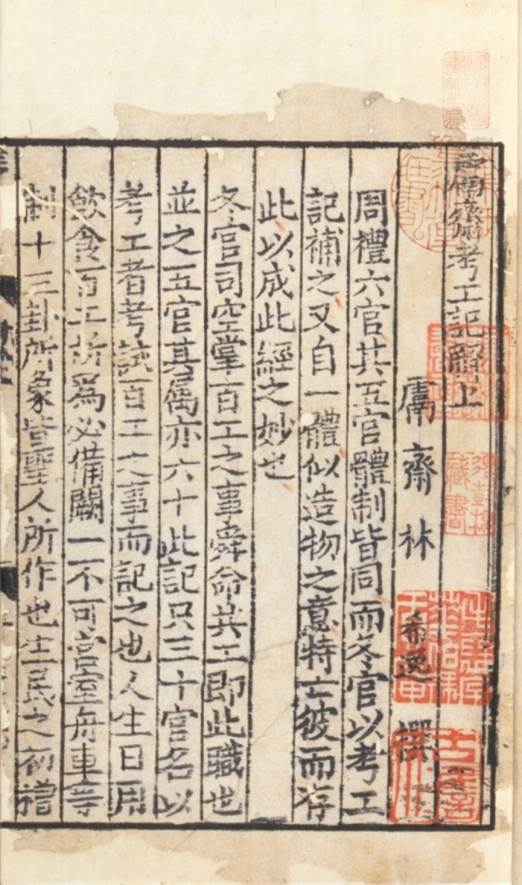 鬳齋考工記解上
鬳齋林希逸撰
周禮六官其五官體制皆同而冬官以考工
記補之又自一體似造物之意特亡彼而存
此以成此經之妙也
冬官司空掌百工之事舜命共工即此職也
並之五官其屬亦六十此記只三十官名以
考工者考試百工之事而記之也人生日用
飲食百工所為必備闕一不可宫室舟車等
制十三卦所象皆聖人所作也生民之初禮